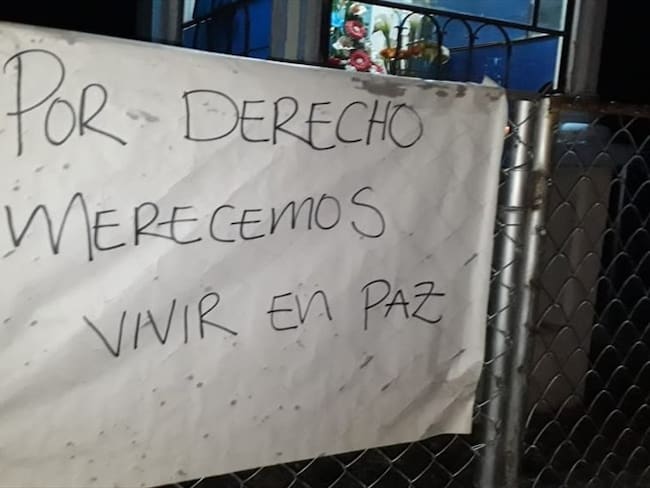 POR DERECHO
MERECEMOS
VIVIR EN PAZ